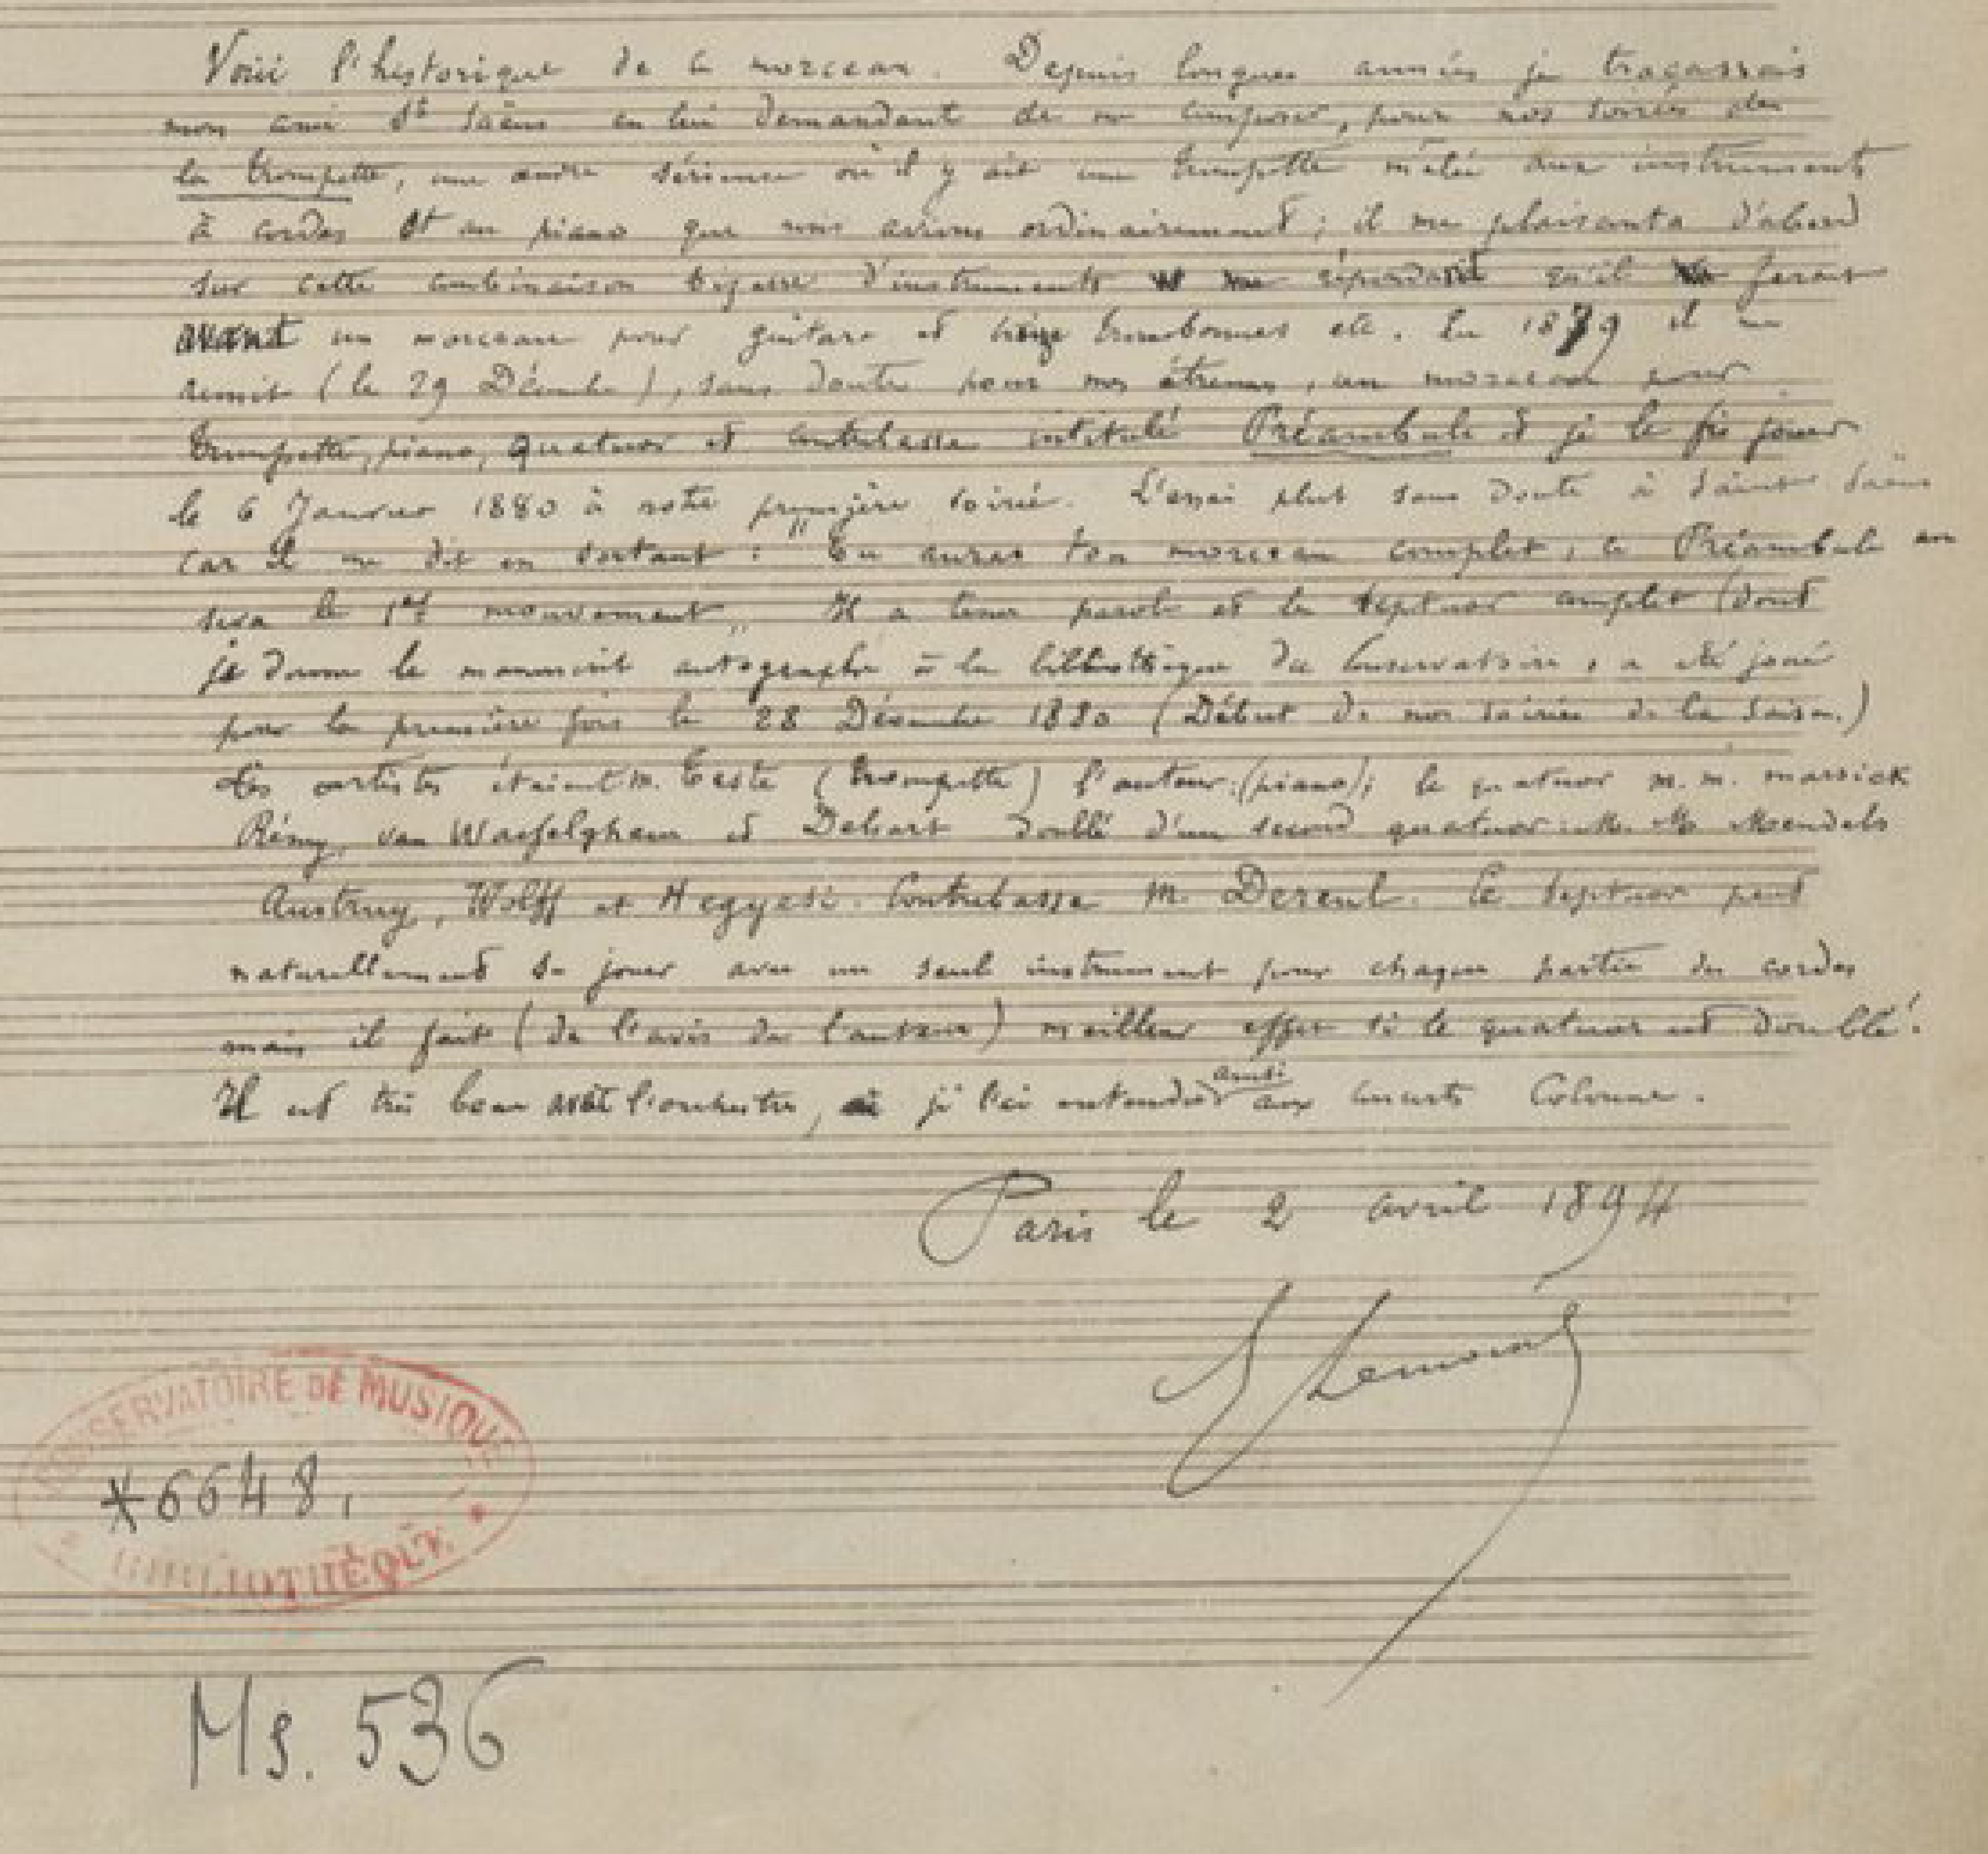 Voici l'historique de ce morceau. Depuis longues années je tracassais
mon ami St Saëns en lui demandant de me composer, pour nos soirées de
la trompette, une œuvre sérieuse où il y ait une trompette mêlée aux instruments
à cordes et au piano que nous avions ordinairement ; il me plaisanta d'abord
sur cette combinaison bizarre d'instruments répondant qu'il ferait
avant un morceau pour guitare et treize trombonnes etc. En 1879 il me
remit (le 29 Décembre), sans doute pour mes étrennes, un morceau pour
trompette, piano, quatuor et contrebasse intitulé Préambule et je le fis jouer
le 6 Janvier 1880 à notre première soirée. L'essai plut sans doute à Saint Saëns
car il me dit en sortant : "Tu auras ton morceau complet, ce Préambule en
sera le 1er mouvement„ Il a tenu parole et le septuor complet (dont
je donne le manuscrit autographe à la bibliothèque du Conservatoire, a été joué
pour la première fois le 28 Décembre 1880 (Début de nos soirées de la saison.)
Les artistes étaient M. Teste (trompette) l'auteur (piano) ; le quatuor M. M. Marsick
Rémy, van Waefelghem et Delsart doublé d'un second quatuor : M. M. Mendels
Austruy, Wolff et Hegyesi. Contrebasse M. Dereul. Ce septuor peut
naturellement se jouer avec un seul instrument pour chaque partie de cordes
mais il fait (de l'avis de l'auteur) meilleur effet si le quatuor est doublé.
Il est très beau avec l'orchestre, je l'ai entendu ainsi aux concerts Colonne.
Paris le 2 avril 1894
E Lemoine
CONSERVATOIRE DE MUSIQUE
*6648.
BIBLIOTHÈQUE
Ms. 536